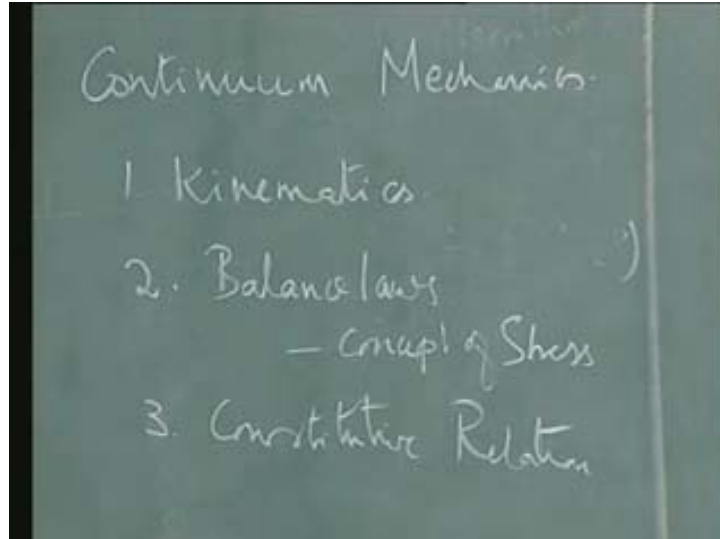 Continuum Mechanics.
1 Kinematics.
2. Balance laws
– concept of Stress
3. Constitutive Relation